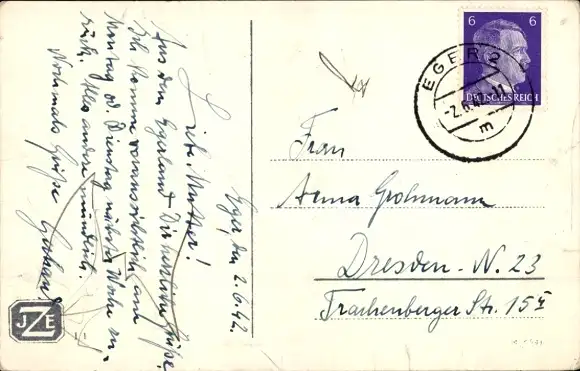 Eger, den 2.6.42.
Liebe Mutter!
Aus dem Egerland Dir herzliche Grüße.
Ich komme voraussichtlich am
Montag od Dienstag nächster Woche zu-
rück. Alles andere mündlich.
Nochmals Grüße
6 6
DEUTSCHES REICH
EGER 2
-2.6.4
E
Frau
Anna Grohmann
Dresden-N. 23
Trachenberger Str. 15
JZE